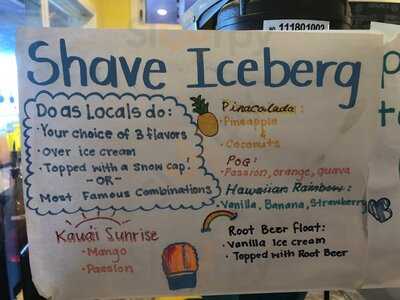 111801002
Shave Iceberg
Do as Locals do:
• Your choice of 3 flavors
• over ice cream
• Topped with a snow cap!
- OR -
Most Famous Combinations
Kauai Sunrise
• Mango
• Passion
Pinacolada:
• Pineapple
&
• Coconuts
POG:
• Passion, orange, guava
Hawaiian Rainbow:
Vanilla, Banana, Strawberry
Root Beer Float:
• Vanilla Ice cream
• Topped with Root Beer